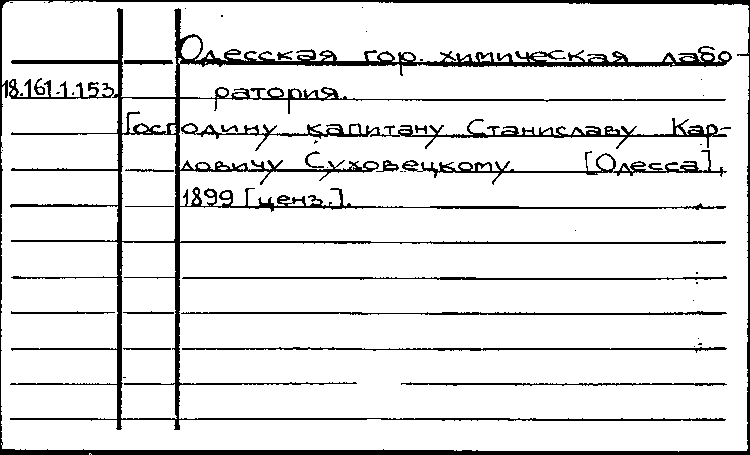 Одесская гор. химическая лабо-
18.161.1.153. ратория.
Господину капитану Станиславу Кар-
ловичу Суховецкому. [Одесса],
1899 [ценз.].